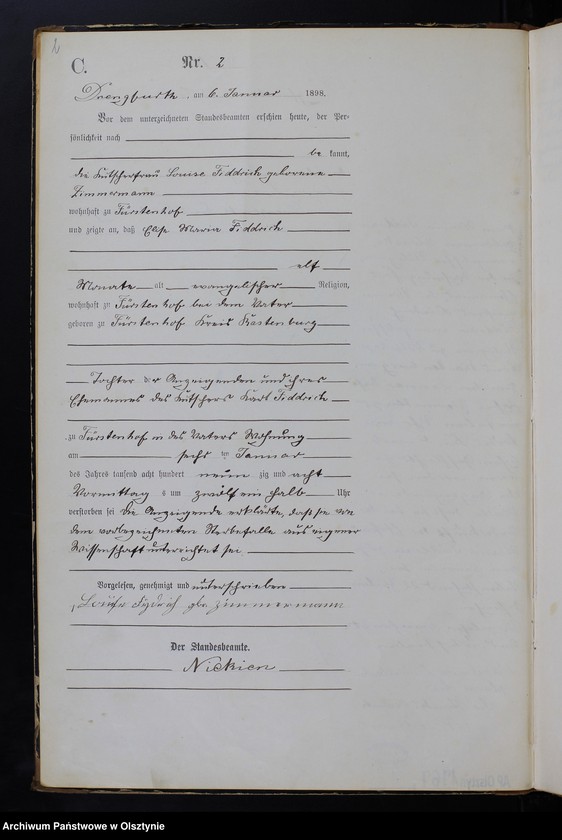 C.
Nr. 2
Drengfurth, am 6. Januar 1898.
Vor dem unterzeichneten Standesbeamten erschien heute, der Per-
sönlichkeit nach
be kannt,
die Kutscherfrau Louise Fiddrich geborene
Zimmermann
wohnhaft zu Fürstenhof
und zeigte an, daß Else Maria Fiddrich
elf
Monate alt evangelischer Religion,
wohnhaft zu Fürstenhof bei dem Vater
geboren zu Fürstenhof Kreis Rastenburg
Tochter der Anzeigenden und ihres
Ehemannes des Kutschers Karl Fiddrich
zu Fürstenhof in des Vaters Wohnung
am sechs ten Januar
des Jahres tausend acht hundert neun zig und acht
Vormittag s um zwölf ein halb Uhr
verstorben sei Die Anzeigende erklärte, daß sie von
dem vorbezeichneten Sterbefalle aus eigener
Wissenschaft unterrichtet sei
Vorgelesen, genehmigt und unterschrieben
Louise gbr Zimmermann
Der Standesbeamte.
Nickien
Archiwum Państwowe w Olsztynie